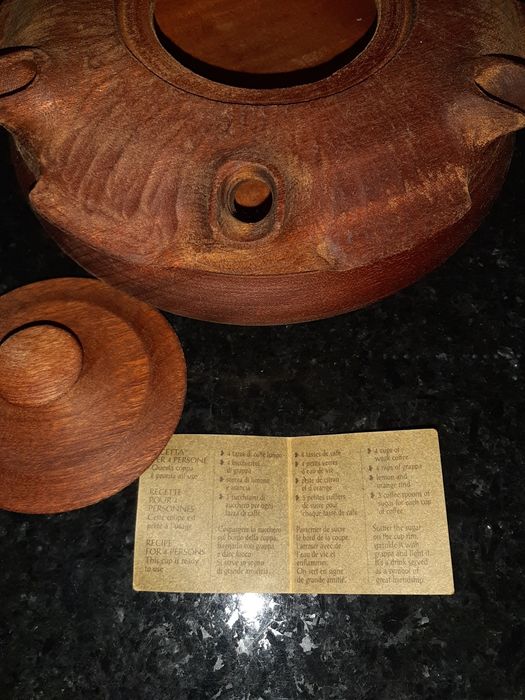 RICETTA
PER 4 PERSONE
Questa coppa
è pronta all'uso
RECETTE
POUR 4
PERSONNES
Cette coupe est
prête à l'usage
RECIPE
FOR 4 PERSONS
This cup is ready
to use
4 tazze di caffè lungo
4 bicchierini
di grappa
scorza di limone
e arancia
3 cucchiaini di
zucchero per ogni
tazza di caffè
Cospargere lo zucchero
sul bordo della coppa,
bagnarlo con grappa
e dar fuoco
Si serve in segno
di grande amicizia
4 tasses de café
4 petits verres
d'eau de vie
zeste de citron
et d'orange
3 petites cuillers
de sucre pour
chaque tasse de café
Parsemer de sucre
le bord de la coupe
L'arroser avec de
l'eau de vie et
enflammer.
On sert en signe
de grande amitié.
4 cups of
weak coffee
4 nips of grappa
lemon and
orange rind
3 coffee spoons of
sugar for each cup
of coffee
Scatter the sugar
on the cup rim,
sprinkle it with
grappa and light it.
It's a drink served
as a symbol of
great friendship.